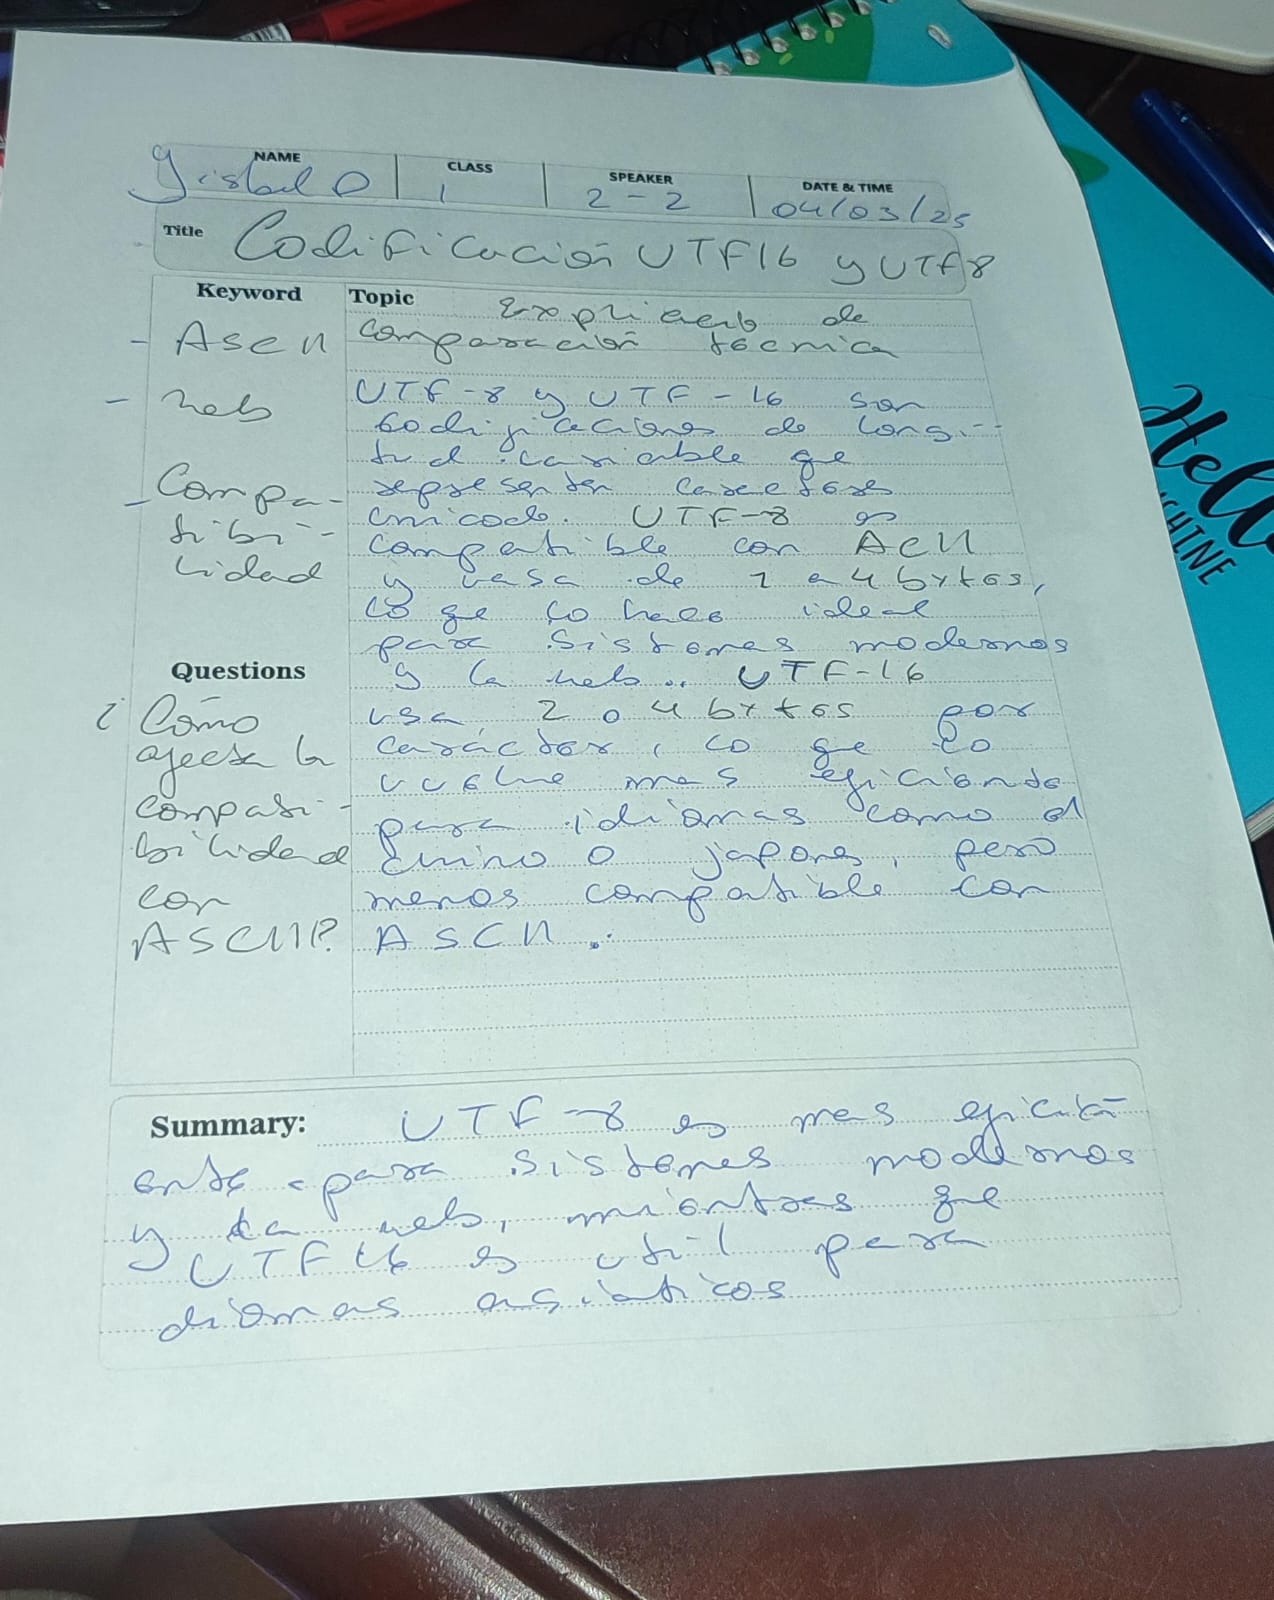 NAME CLASS SPEAKER DATE & TIME
Yisbel O 1 2-2 04/03/25
Title Codificación UTF16 y UTF8
Keyword
- ASCII
- web
- Compa-
tibi-
lidad
Questions
¿Cómo
afecta la
compati-
bilidad
con
ASCII?
Topic
de
comparación técnica
UTF-8 y UTF-16 son
codificaciones de longi-
tud variable que
representan caracteres
unicode. UTF-8 es
compatible con ACII
y usa de 1 a 4 bytes,
lo que lo hace ideal
para sistemas modernos
y la web. UTF-16
usa 2 o 4 bytes por
carácter, lo que lo
vuelve mas eficiente
para idiomas como el
chino o japones, pero
menos compatible con
ASCII.
Summary: UTF-8 es mas efici
ente para sistemas modernos
y la web, mientras que
UTF16 es util para
diomas asiaticos
Hello
SHINE